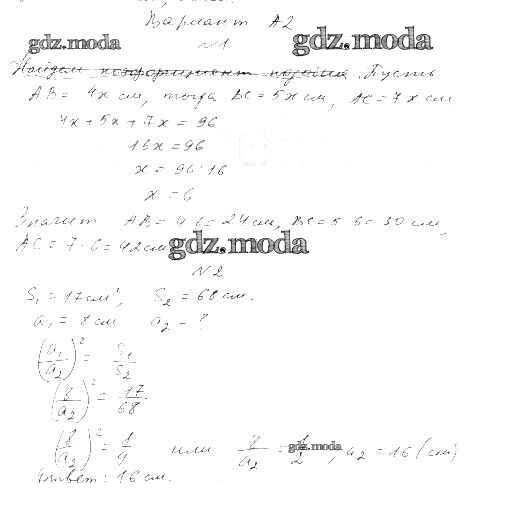 Вариант А2
gdz.moda
№1
gdz.moda
Найдем коэффициент Пусть
AB = 4x см, тогда BC = 5x см, AC = 7x см
4x + 5x + 7x = 96
16x = 96
x = 96 : 16
x = 6
Значит AB = 4 · 6 = 24 см, BC = 5 · 6 = 30 см,
AC = 7 · 6 = 42 см
gdz.moda
№2
S₁ = 17 см², S₂ = 68 см.
a₁ = 8 см a₂ - ?
(a₁/a₂)² = S₁/S₂
(8/a₂)² = 17/68
(8/a₂)² = 1/4 или 8/a₂ = 1/2, a₂ = 16 (см)
gdz.moda
Ответ: 16 см.